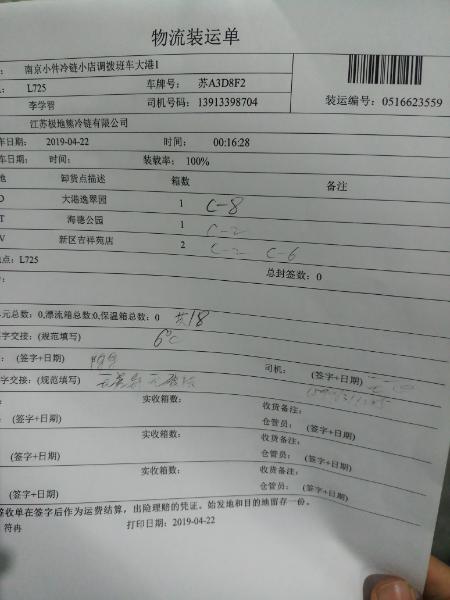 物流装运单
南京小件冷链小店调拨班车大港1
L725 车牌号： 苏A3D8F2
李学智 司机号码： 13913398704 装运编号： 0516623559
江苏极地熊冷链有限公司
车日期： 2019-04-22 时间： 00:16:28
车日期： 时间： 装载率： 100%
地 卸货点描述 箱数 备注
O 大港逸翠园 1 C-8
T 海德公园 1 C-2
V 新区吉祥苑店 2 C-2 C-6
点： L725 总封签数： 0
元总数： 0,漂流箱总数:0,保温箱总数： 0 共18
字交接： (规范填写) 6℃
： (签字+日期) 司机： (签字+日期)
字交接： (规范填写)
实收箱数： 收货备注：
(签字+日期) 仓管员： (签字+日期)
实收箱数： 收货备注：
(签字+日期) 仓管员： (签字+日期)
实收箱数： 收货备注：
(签字+日期) 仓管员： (签字+日期)
签收单在签字后作为运费结算，出险理赔的凭证。始发地和目的地留存一份。
符冉 打印日期： 2019-04-22